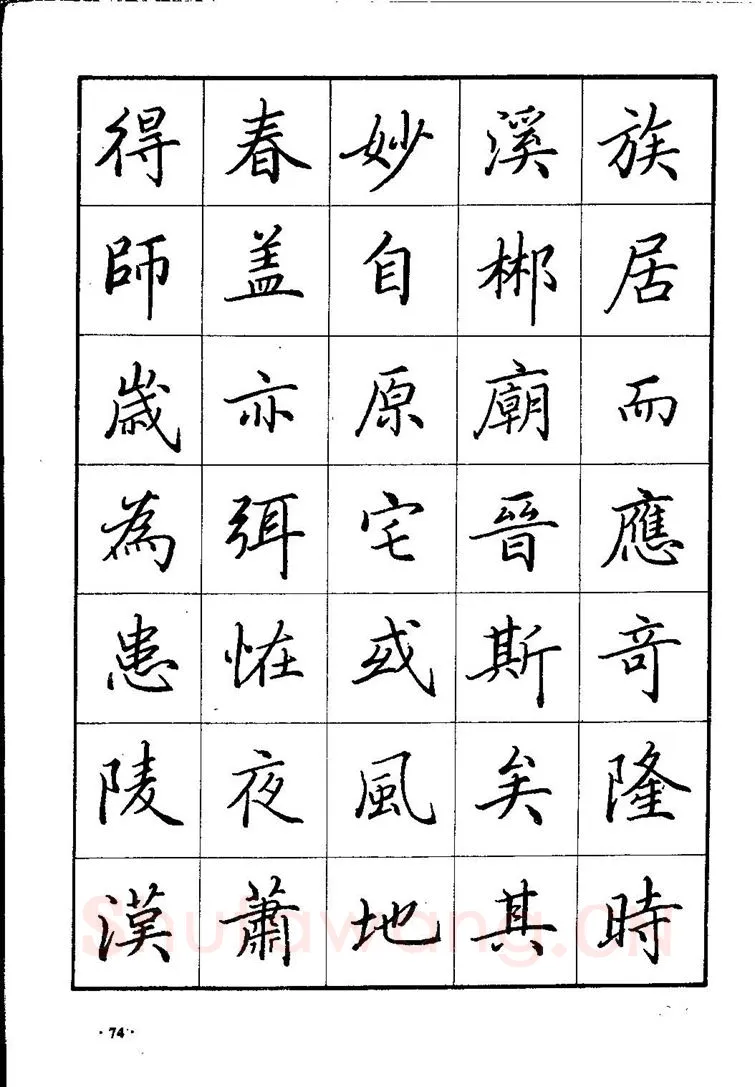 族居而應竒隆時
溪郴廟晉斯矣其
妙自原宅或風地
春盖亦弭恠夜蕭
得師歲為患陵漠
·74·
Shufawang.cn